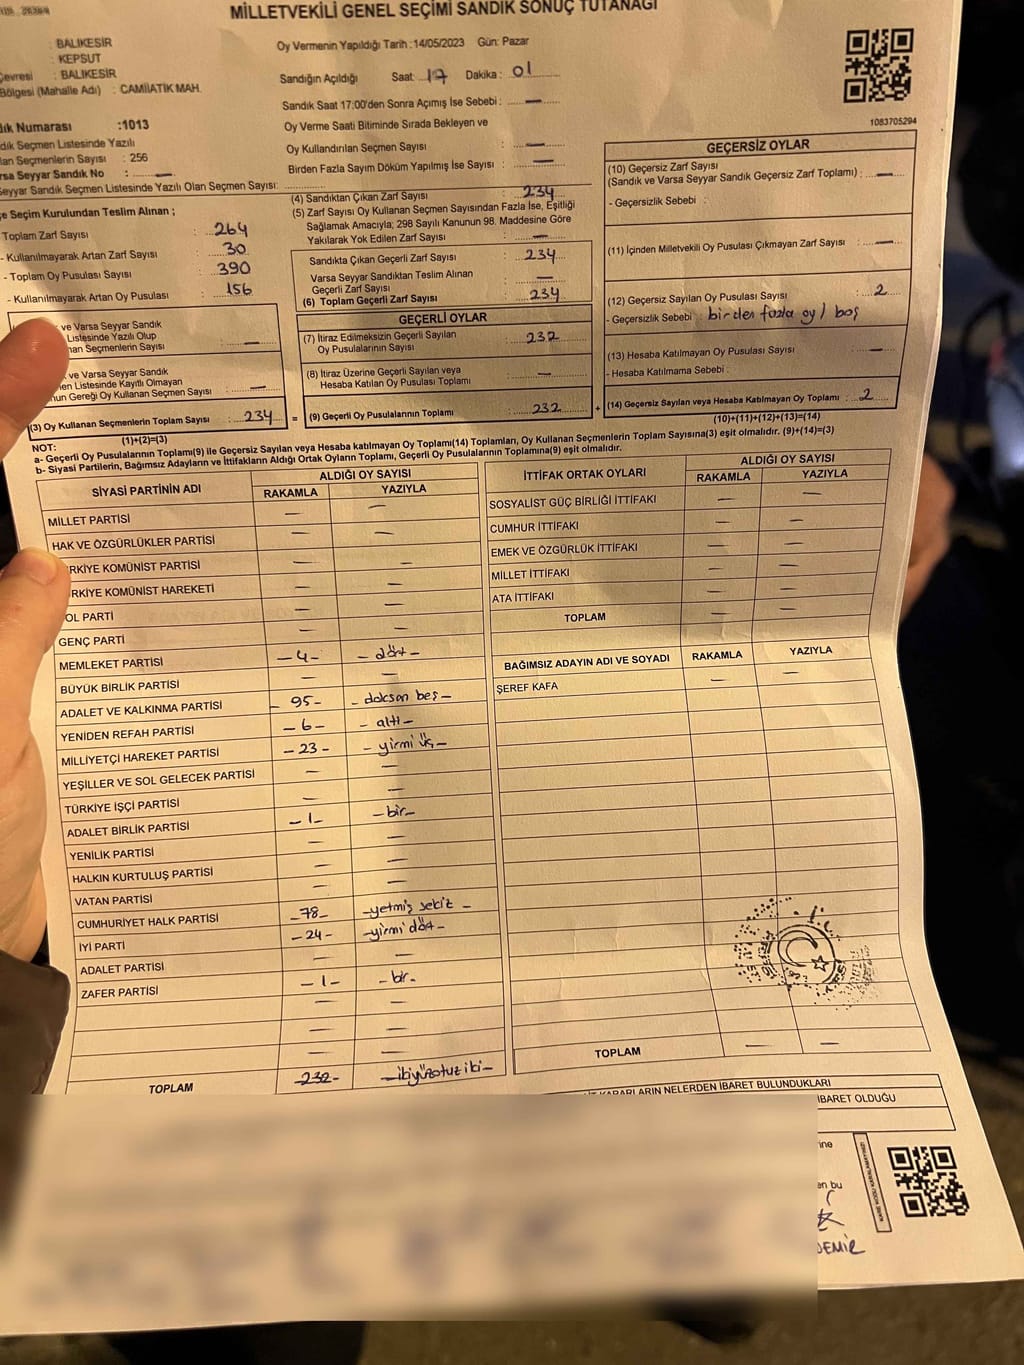 MİLLETVEKİLİ GENEL SEÇİMİ SANDIK SONUÇ TUTANAĞI
: BALIKESİR
: KEPSUT
Çevresi : BALIKESİR
Bölgesi (Mahalle Adı) : CAMİİATİK MAH.
Oy Vermenin Yapıldığı Tarih :14/05/2023 Gün: Pazar
Sandığın Açıldığı Saat: 17 Dakika: 01
Sandık Saat 17:00'den Sonra Açımış İse Sebebi : —
Oy Verme Saati Bitiminde Sırada Bekleyen ve
Oy Kullandırılan Seçmen Sayısı : —
Birden Fazla Sayım Döküm Yapılmış İse Sayısı : —
1083705294
Numarası :1013
Seçmen Listesinde Yazılı
Seçmenlerin Sayısı : 256
Varsa Seyyar Sandık No : —
Seyyar Sandık Seçmen Listesinde Yazılı Olan Seçmen Sayısı:
Seçim Kurulundan Teslim Alınan ;
Toplam Zarf Sayısı : 264
- Kullanılmayarak Artan Zarf Sayısı : 30
- Toplam Oy Pusulası Sayısı : 390
- Kullanılmayarak Artan Oy Pusulası : 156
ve Varsa Seyyar Sandık
Listesinde Yazılı Olup
Seçmenlerin Sayısı : —
ve Varsa Seyyar Sandık
Listesinde Kayıtlı Olmayan
Gereği Oy Kullanan Seçmen Sayısı : —
(3) Oy Kullanan Seçmenlerin Toplam Sayısı : 234
(1)+(2)=(3)
(4) Sandıktan Çıkan Zarf Sayısı : 234
(5) Zarf Sayısı Oy Kullanan Seçmen Sayısından Fazla İse, Eşitliği
Sağlamak Amacıyla; 298 Sayılı Kanunun 98. Maddesine Göre
Yakılarak Yok Edilen Zarf Sayısı : —
Sandıkta Çıkan Geçerli Zarf Sayısı : 234
Varsa Seyyar Sandıktan Teslim Alınan
Geçerli Zarf Sayısı : —
(6) Toplam Geçerli Zarf Sayısı : 234
GEÇERLİ OYLAR
(7) İtiraz Edilmeksizin Geçerli Sayılan
Oy Pusulalarının Sayısı : 232
(8) İtiraz Üzerine Geçerli Sayılan veya
Hesaba Katılan Oy Pusulası Toplamı : —
= (9) Geçerli Oy Pusulalarının Toplamı : 232 +
GEÇERSİZ OYLAR
(10) Geçersiz Zarf Sayısı
(Sandık ve Varsa Seyyar Sandık Geçersiz Zarf Toplamı) : —
- Geçersizlik Sebebi :
(11) İçinden Milletvekili Oy Pusulası Çıkmayan Zarf Sayısı : —
(12) Geçersiz Sayılan Oy Pusulası Sayısı : 2
- Geçersizlik Sebebi : birden fazla oy / boş
(13) Hesaba Katılmayan Oy Pusulası Sayısı : —
- Hesaba Katılmama Sebebi :
(14) Geçersiz Sayılan veya Hesaba Katılmayan Oy Toplamı : 2
(10)+(11)+(12)+(13)=(14)
NOT:
a- Geçerli Oy Pusulalarının Toplamı(9) ile Geçersiz Sayılan veya Hesaba katılmayan Oy Toplamı(14) Toplamları, Oy Kullanan Seçmenlerin Toplam Sayısına(3) eşit olmalıdır. (9)+(14)=(3)
b- Siyasi Partilerin, Bağımsız Adayların ve İttifakların Aldığı Ortak Oyların Toplamı, Geçerli Oy Pusulalarının Toplamına(9) eşit olmalıdır.
SİYASİ PARTİNİN ADI
ALDIĞI OY SAYISI
RAKAMLA YAZIYLA
MİLLET PARTİSİ — —
HAK VE ÖZGÜRLÜKLER PARTİSİ — —
RKİYE KOMÜNİST PARTİSİ — —
RKİYE KOMÜNİST HAREKETİ — —
OL PARTİ — —
GENÇ PARTİ — —
MEMLEKET PARTİSİ -4- -dört-
BÜYÜK BİRLİK PARTİSİ — —
ADALET VE KALKINMA PARTİSİ - 95- - doksan beş-
YENİDEN REFAH PARTİSİ -6- - altı-
MİLLİYETÇİ HAREKET PARTİSİ -23- - yirmi üç-
YEŞİLLER VE SOL GELECEK PARTİSİ — —
TÜRKİYE İŞÇİ PARTİSİ — —
ADALET BİRLİK PARTİSİ -1- -bir-
YENİLİK PARTİSİ — —
HALKIN KURTULUŞ PARTİSİ — —
VATAN PARTİSİ — —
CUMHURİYET HALK PARTİSİ -78- -yetmiş sekiz-
İYİ PARTİ -24- -yirmi dört-
ADALET PARTİSİ — —
ZAFER PARTİSİ -1- -bir-
TOPLAM -232- -ikiyüzotuz iki-
İTTİFAK ORTAK OYLARI
ALDIĞI OY SAYISI
RAKAMLA YAZIYLA
SOSYALİST GÜÇ BİRLİĞİ İTTİFAKI — —
CUMHUR İTTİFAKI — —
EMEK VE ÖZGÜRLÜK İTTİFAKI — —
MİLLET İTTİFAKI — —
ATA İTTİFAKI — —
TOPLAM — —
BAĞIMSIZ ADAYIN ADI VE SOYADI RAKAMLA YAZIYLA
ŞEREF KAFA — —
TOPLAM — —
KARARLARIN NELERDEN İBARET BULUNDUKLARI
İBARET OLDUĞU